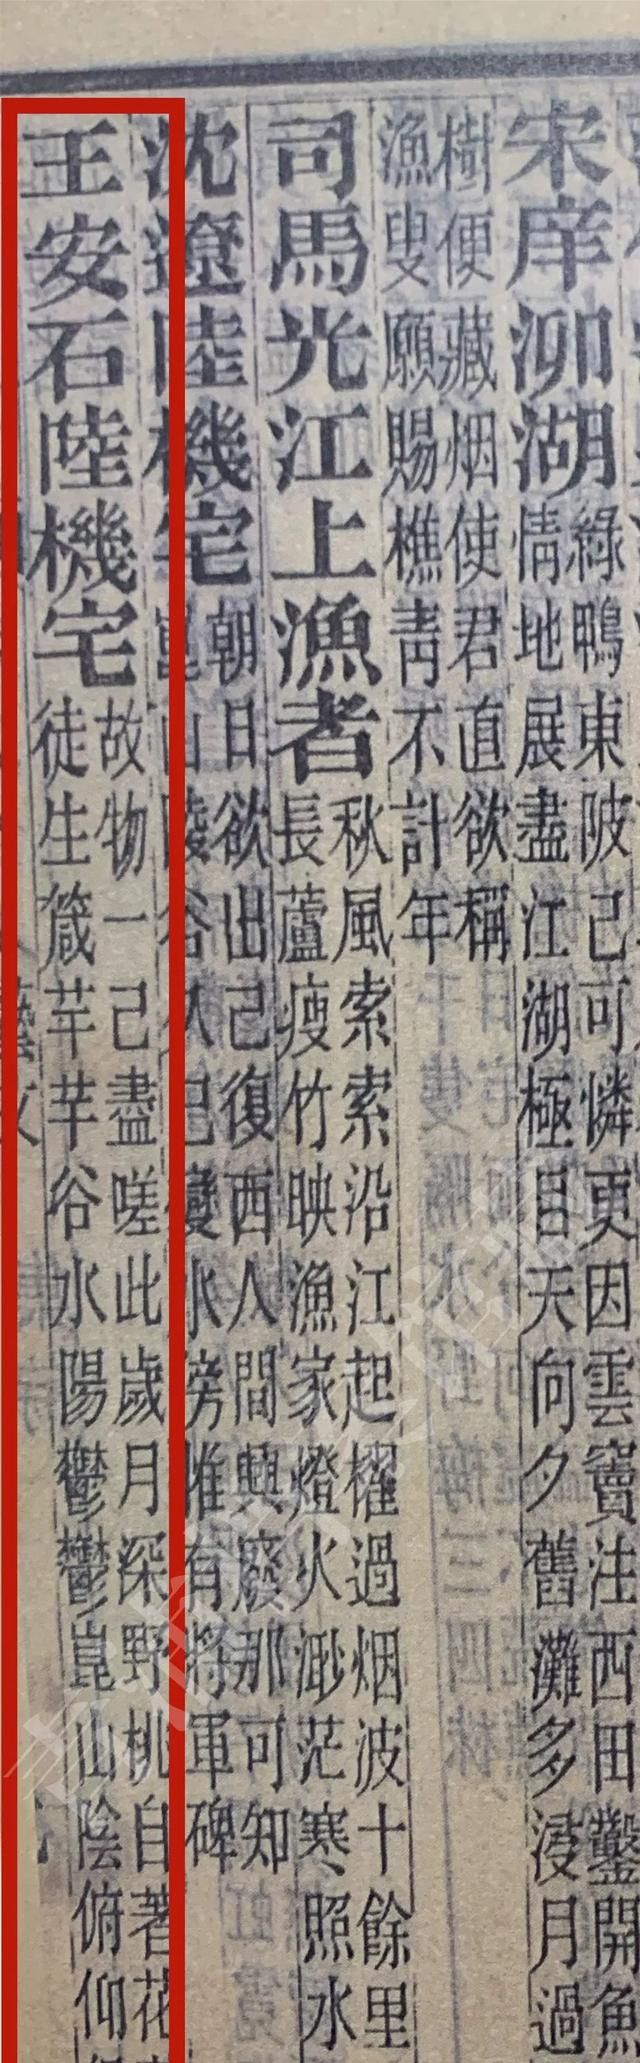 宋庠泖湖
綠鴨東陂已可憐更因雲竇注西田鑿開魚
情地展盡江湖極目天向夕舊灘多浸月過
樹便藏烟使君直欲稱
漁叟願賜樵靑不計年
司馬光江上漁者
秋風索索沿江起櫂過烟波十餘里
長蘆瘦竹映漁家燈火渺茫寒照水
沈遼陸機宅
朝日欲出已復西人間興廢那可知
崑山陵谷久已變水傍惟有將軍碑
王安石陸機宅
故物一已盡嗟此歲月深野桃自著花
徒生箴芊芊谷水陽鬱鬱崑山陰俯仰